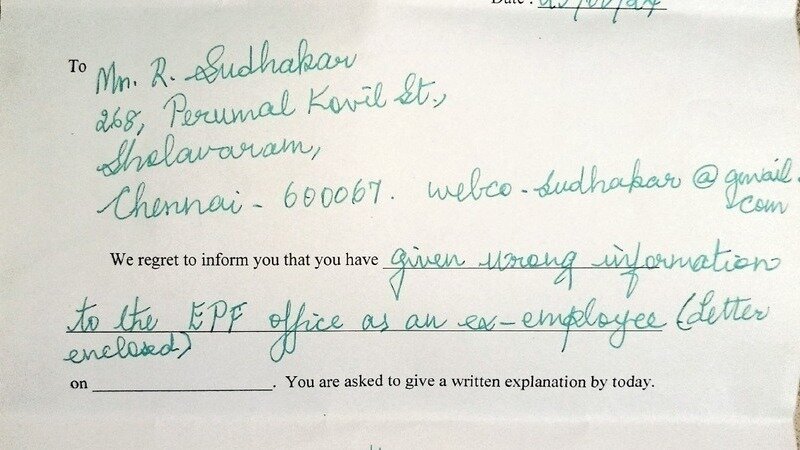 Date :
To
Mr. R. Sudhakar
268, Perumal Kovil St.,
Sholavaram,
Chennai - 600067. webco.sudhakar@gmail.
com
We regret to inform you that you have given wrong information
to the EPF office as an ex-employee (Letter
enclosed)
on ____________. You are asked to give a written explanation by today.